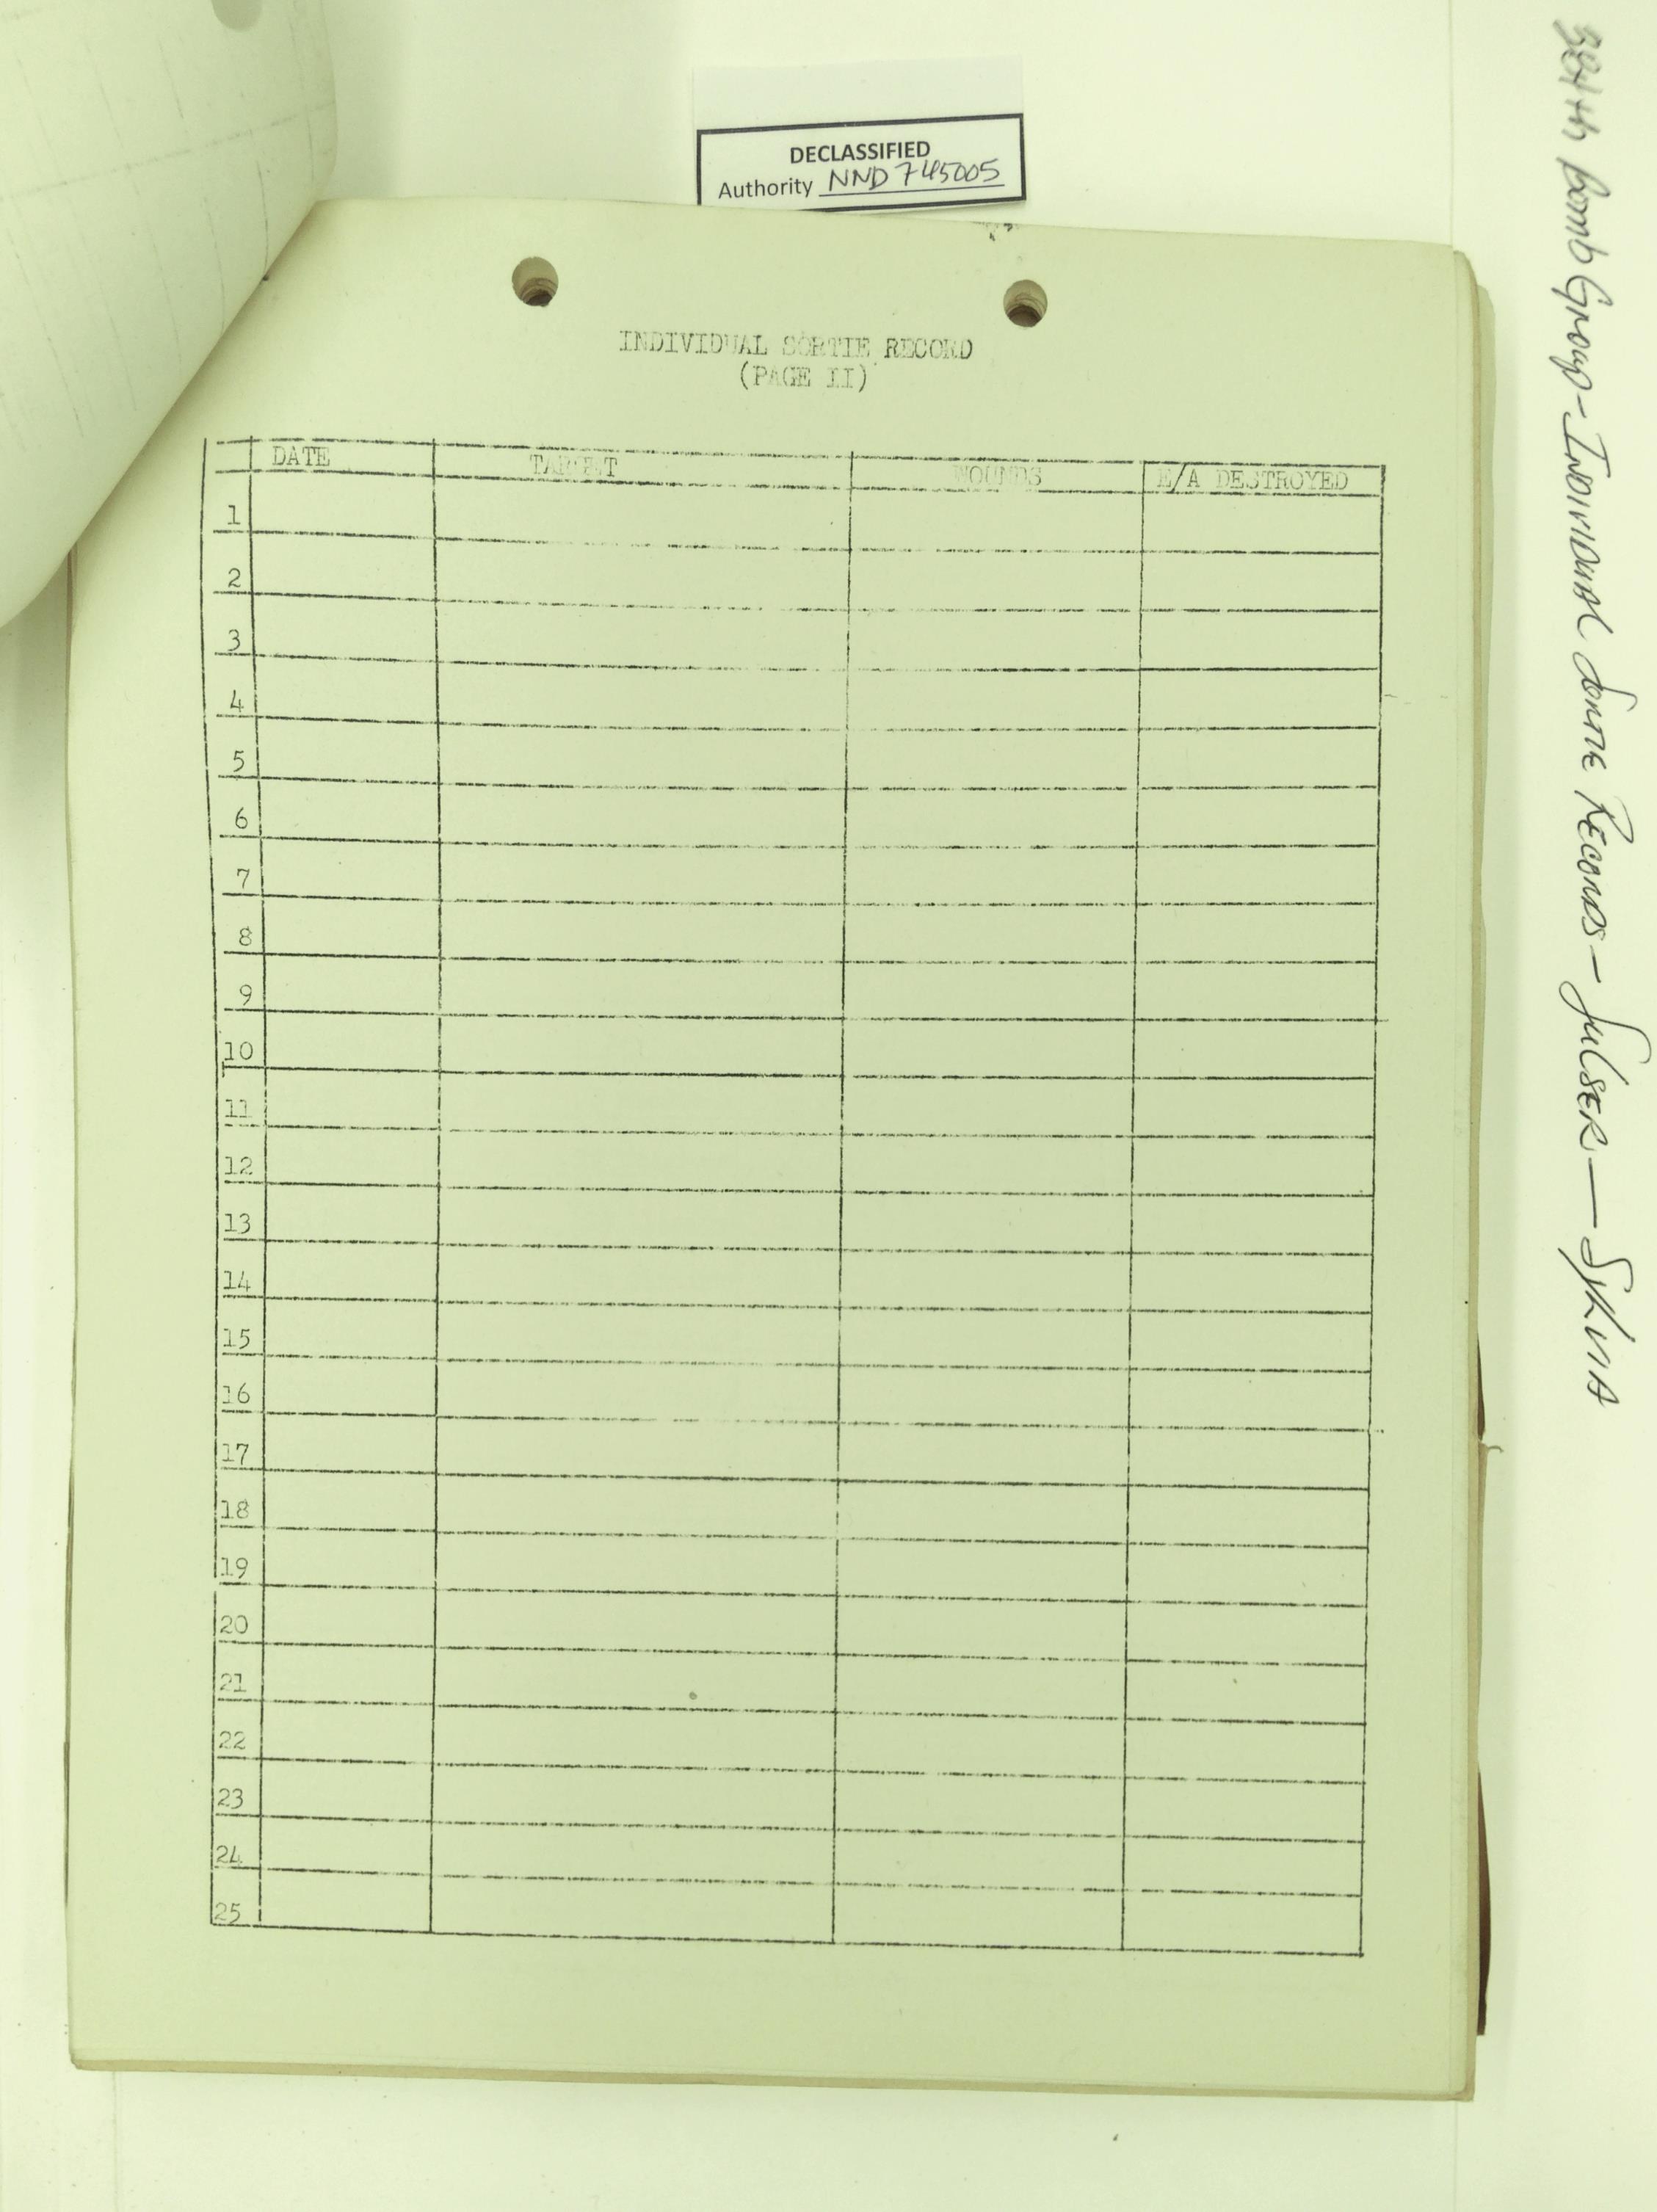 DECLASSIFIED
Authority NND 745005
INDIVIDUAL SORTIE RECORD
(PAGE II)
DATE TARGET WOUNDS E/A DESTROYED
1
2
3
4
5
6
7
8
9
10
11
12
13
14
15
16
17
18
19
20
21
22
23
24
25
384th Bomb Group - Individual Sortie Records - Sulser - Sylvia